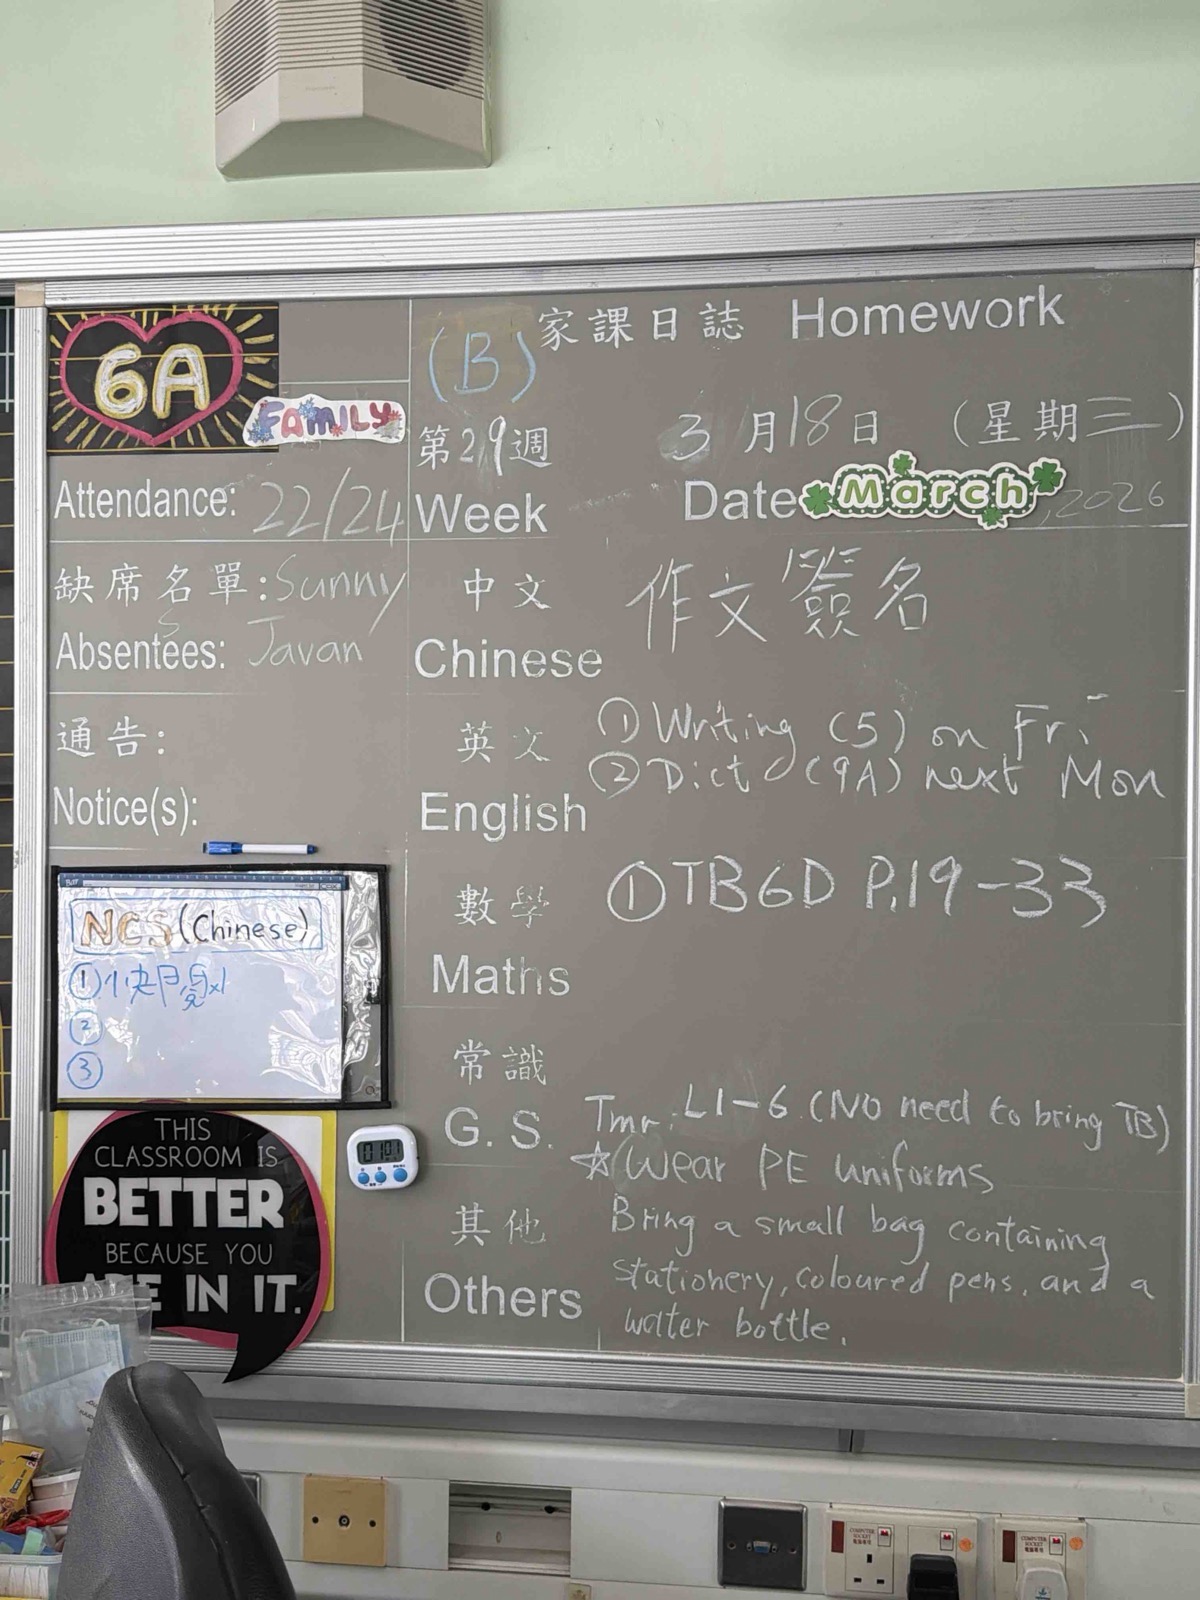 6A
FAMILY
(B)
家課日誌 Homework
第29週
3月18日 (星期三)
Week
Date March, 2026
Attendance: 22/24
缺席名單: Sunny
Absentees: Javan
通告:
Notice(s):
NCS (Chinese)
①
②
③
THIS
CLASSROOM IS
BETTER
BECAUSE YOU
ARE IN IT.
中文
Chinese
作文簽名
英文
English
① Writing (5) on Fri
② Dict (9A) next Mon
數學
Maths
① TB6D P.19-33
常識
G. S.
Tmr: L1-6 (No need to bring TB)
☆ Wear PE uniforms
其他
Others
Bring a small bag containing
stationery, coloured pens, and a
water bottle.
COMPUTER
SOCKET
電腦專用
COMPUTER
SOCKET
電腦專用